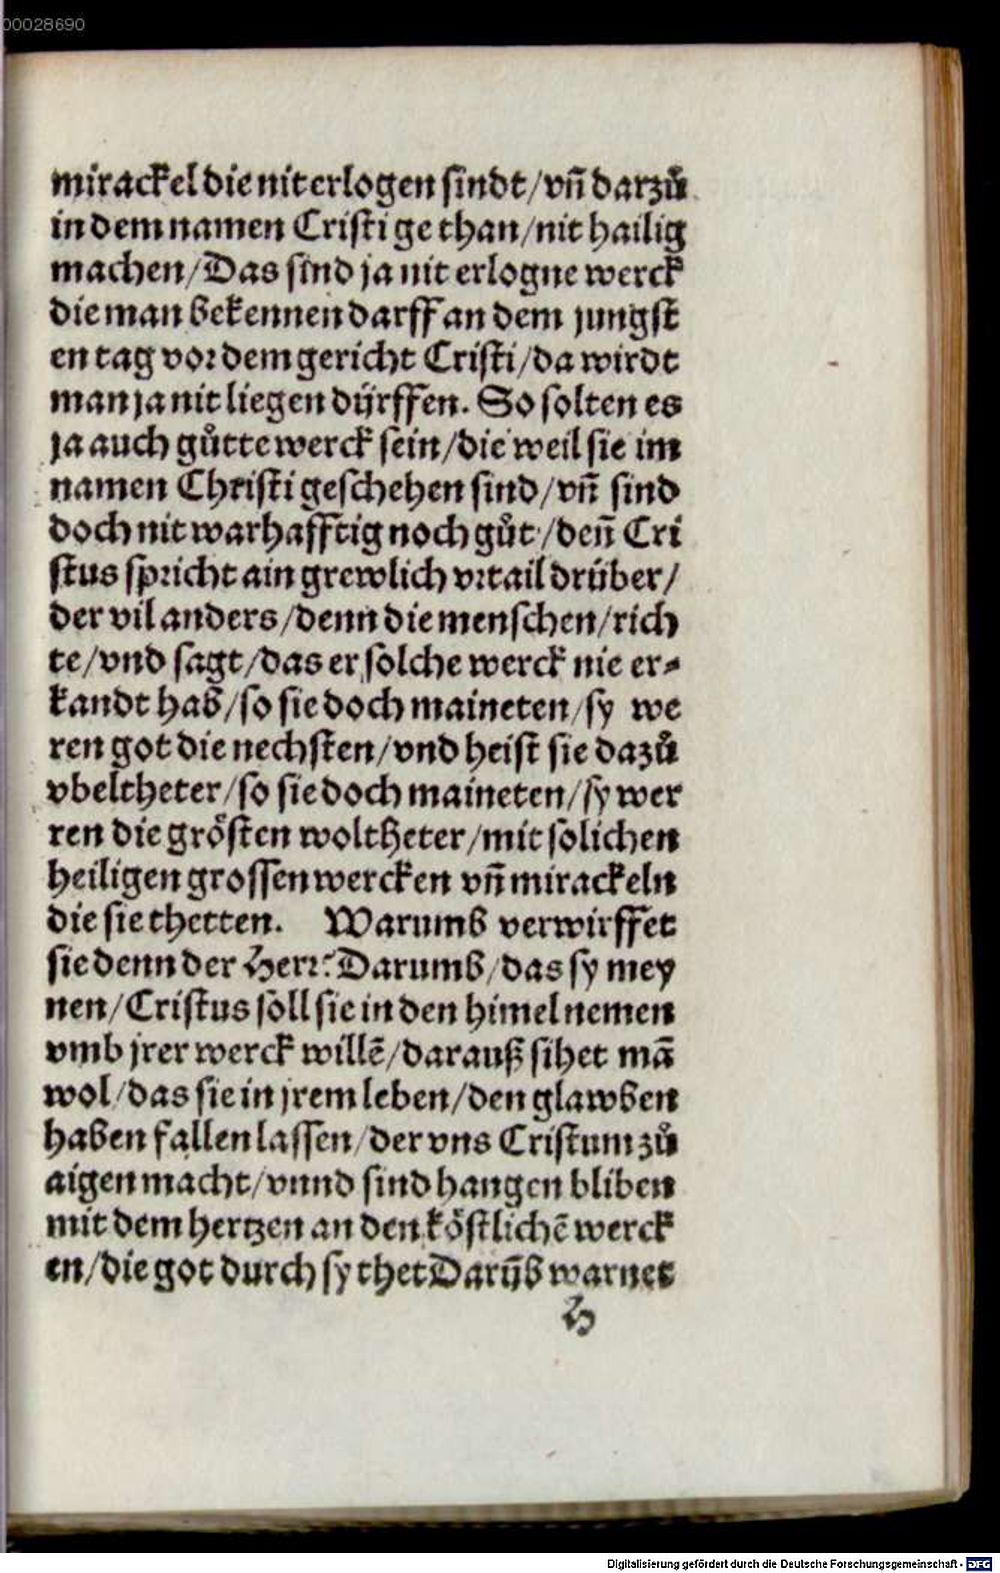 00028690
mirackel die nit erlogen sindt/vñ darzů
in dem namen Cristi ge than/nit hailig
machen/Das sind ja nit erlogne werck
die man bekennen darff an dem jungst
en tag vor dem gericht Cristi/da wirdt
man ja nit liegen dürffen. So solten es
ja auch gůtte werck sein/die weil sie im
namen Christi geschehen sind/vñ sind
doch nit warhafftig noch gůt/deñ Cri
stus spricht ain grewlich vrtail drüber/
der vil anders/denn die menschen/rich
te/vnd sagt/das er solche werck nie er⸗
kandt hab/so sie doch maineten/sy we
ren got die nechsten/vnd heist sie dazů
vbeltheter/so sie doch maineten/sy wer
ren die grösten woltheter/mit solichen
heiligen grossen wercken vñ mirackeln
die sie thetten. Warumb verwirffet
sie denn der Herr? Darumb/das sy mey
nen/Cristus soll sie in den himel nemen
vmb jrer werck willē/darauß sihet mā
wol/das sie in jrem leben/den glawben
haben fallen lassen/der vns Cristum zů
aigen macht/vnnd sind hangen bliben
mit dem hertzen an den köstlichē werck
en/die got durch sy thet Darūb warnet
H
Digitalisierung gefördert durch die Deutsche Forschungsgemeinschaft - DFG